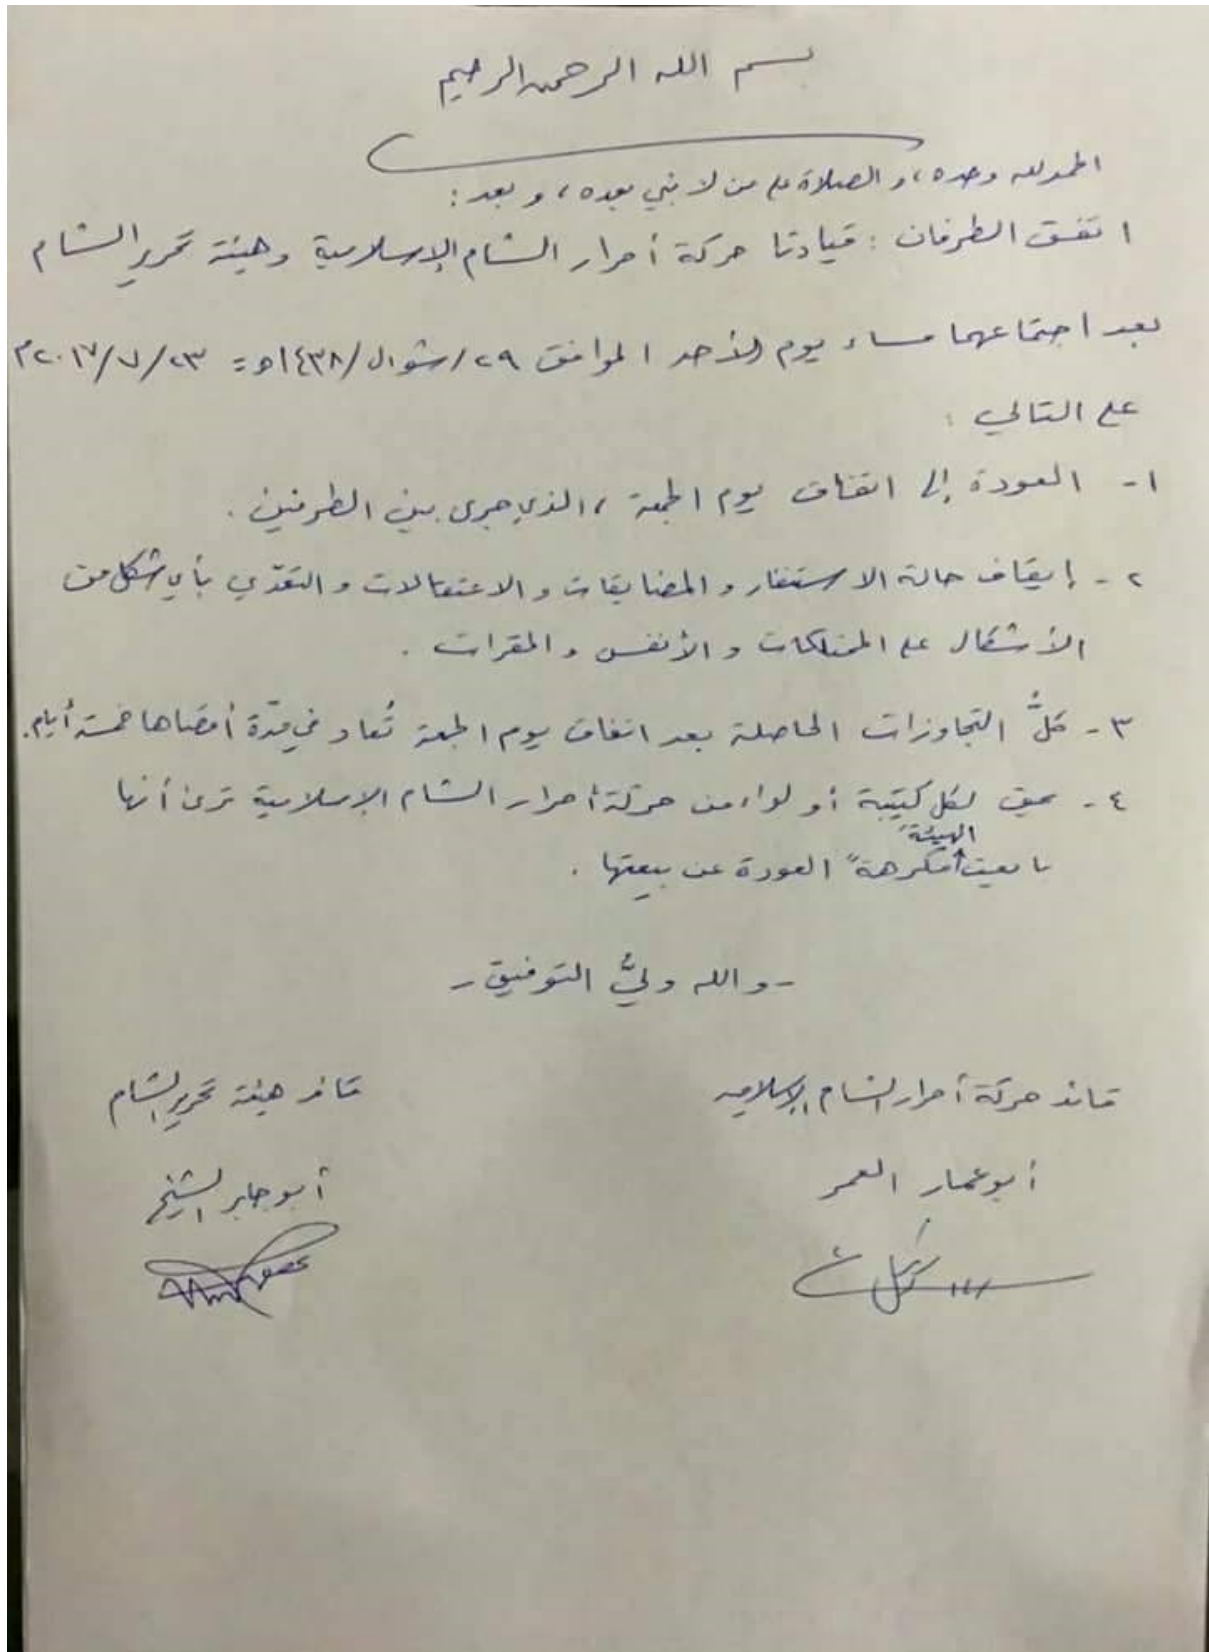 بسم الله الرحمن الرحيم
الحمد لله وحده، والصلاة على من لا نبي بعده، وبعد:
اتفق الطرفان: قيادتا حركة أحرار الشام الإسلامية وهيئة تحرير الشام
بعد اجتماعهما مساء يوم الأحد الموافق ٢٩/شوال/١٤٣٨هـ = ٢٣/٧/٢٠١٧م
على التالي:
١- العودة إلى اتفاق يوم الجمعة، الذي جرى بين الطرفين.
٢- إيقاف حالة الاستنفار والمضايقات والاعتقالات والتعدّي بأي شكل من
الأشكال على الممتلكات والأنفس والمقرات.
٣- كلُّ التجاوزات الحاصلة بعد اتفاق يوم الجمعة تُعاد في مدّة أقصاها خمسة أيام.
٤- يحق لكل كتيبة أو لواء من حركة أحرار الشام الإسلامية ترى أنها
بايعت الهيئةَ مكرهةً العودة عن بيعتها.
- والله وليُّ التوفيق -
قائد حركة أحرار الشام الإسلامية
قائد هيئة تحرير الشام
أبو عمار العمر
أبو جابر الشيخ